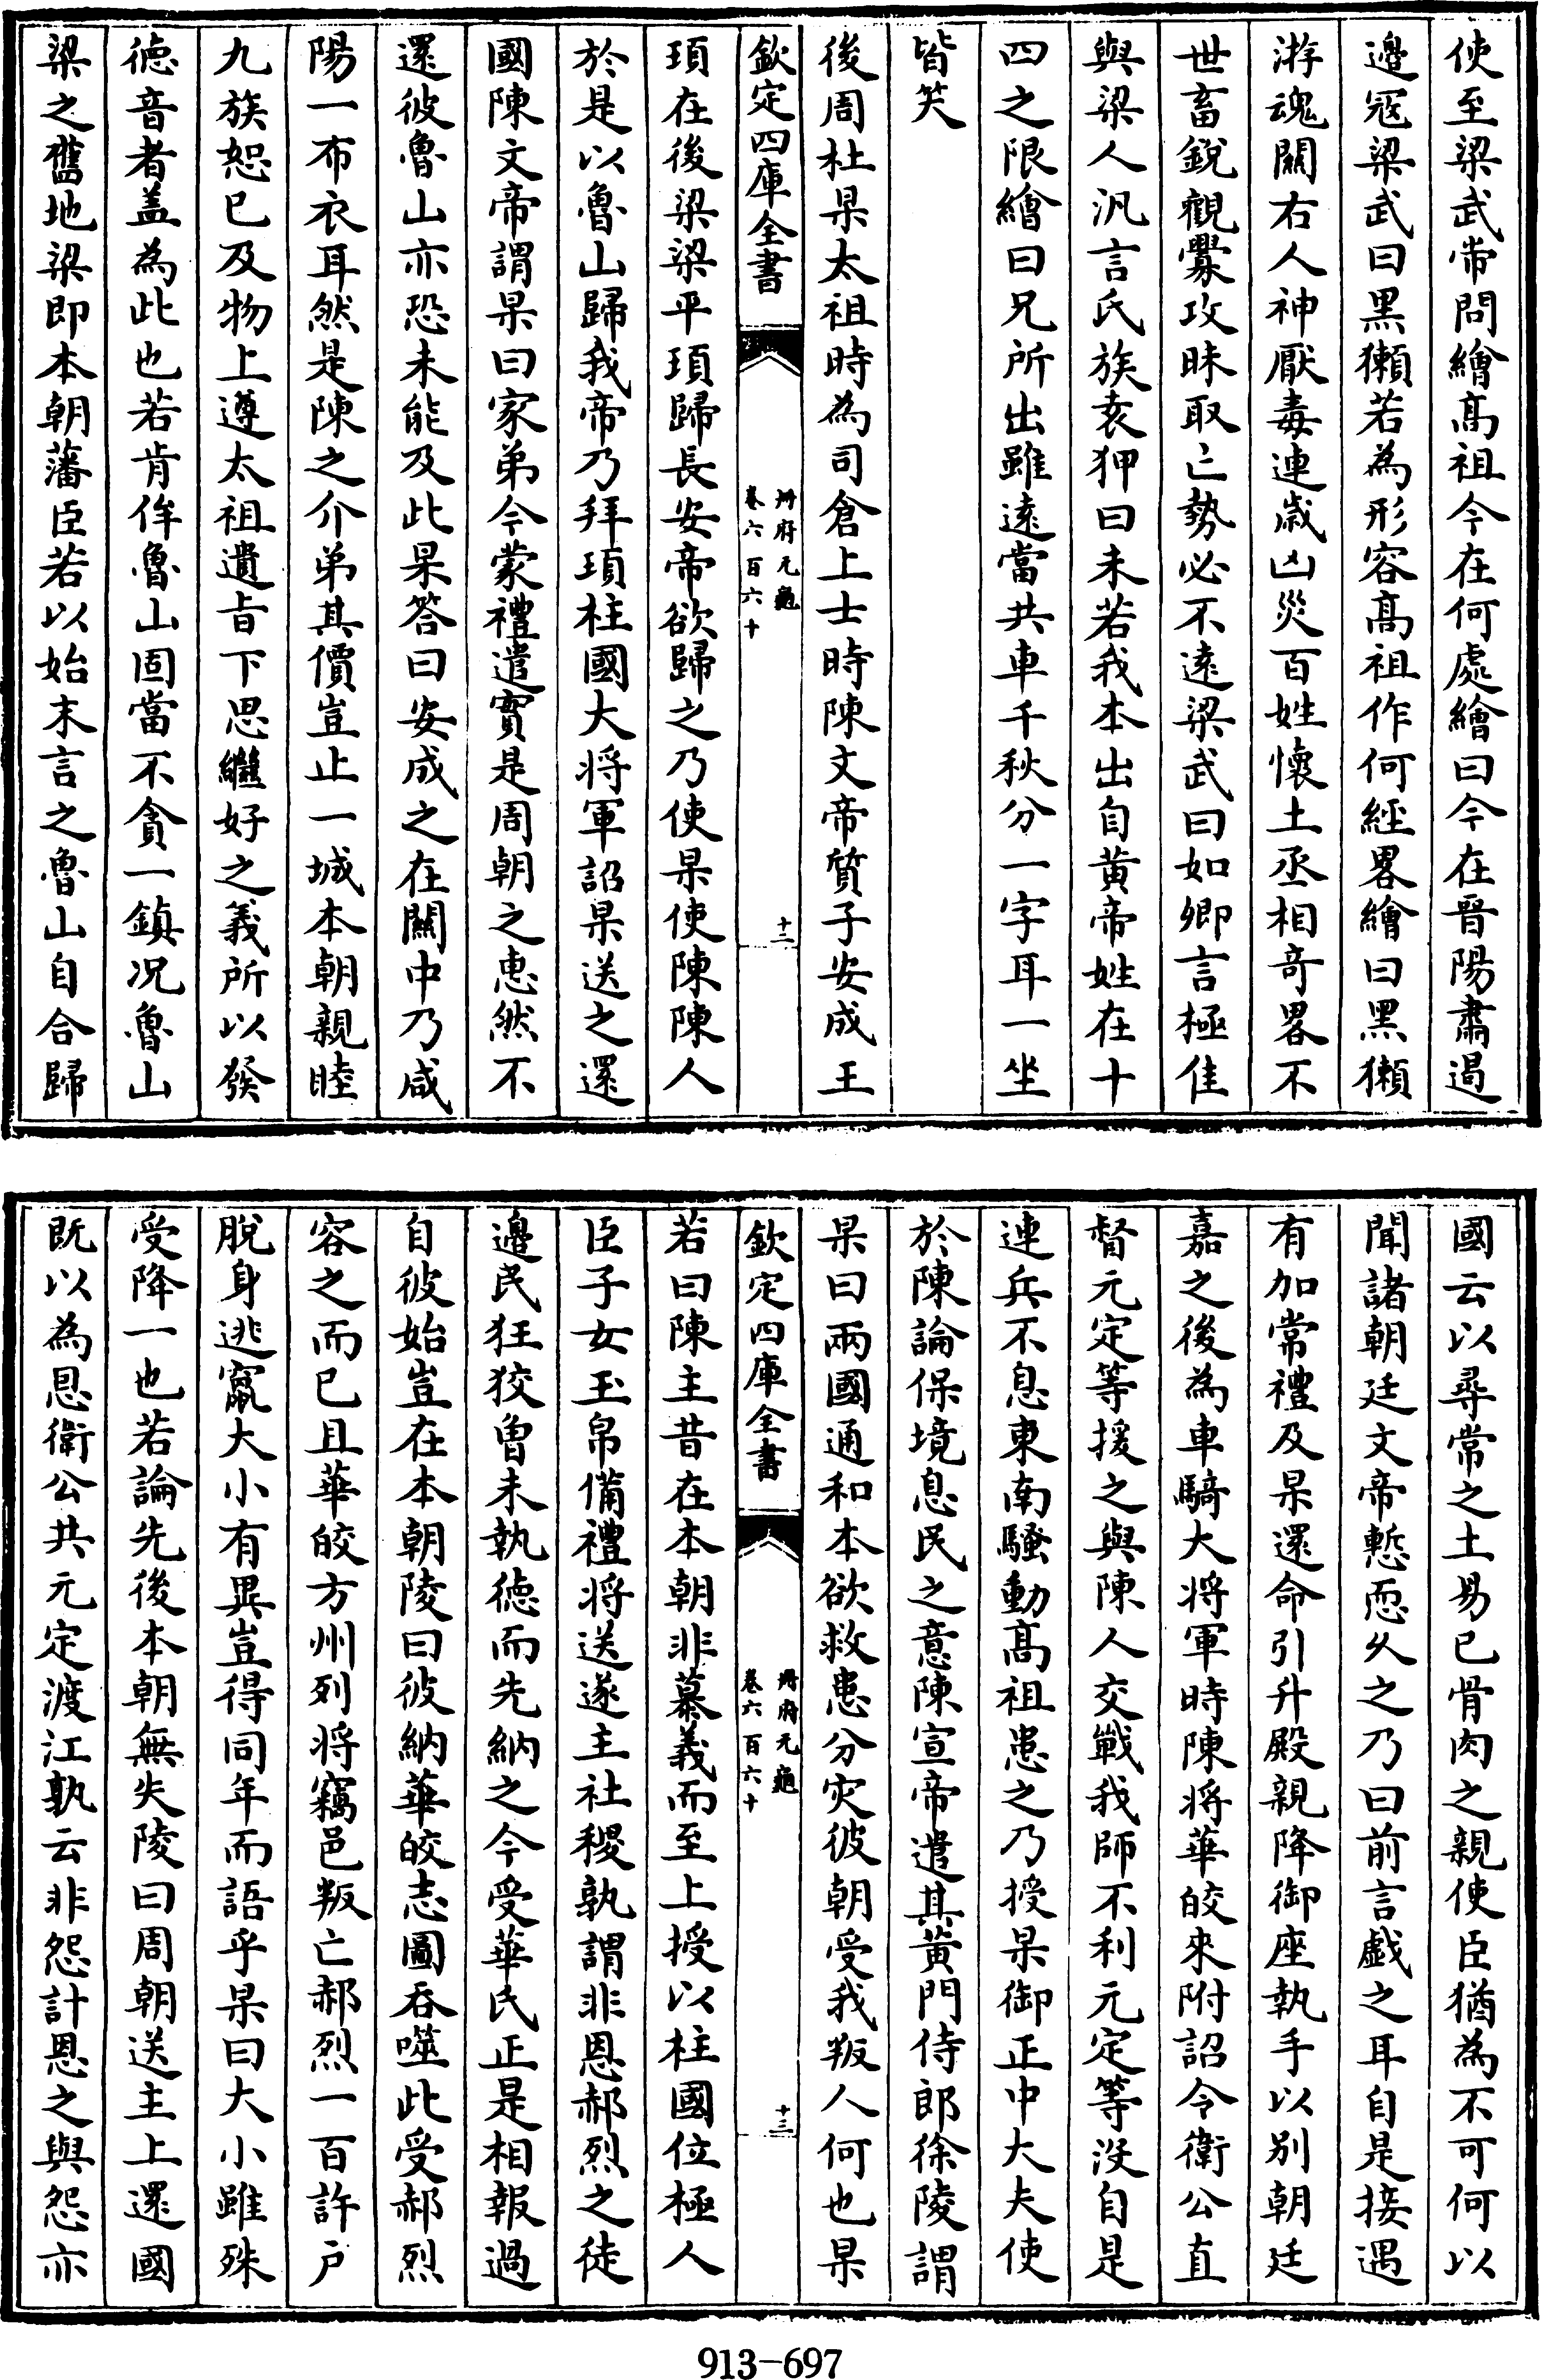 使至梁武帝問繪髙祖今在何處繪曰今在晉陽肅遏
邊宼梁武曰黒獺若為形容髙祖作何經畧繪曰黒獺
游魂關右人神厭毒連歳凶災百姓懐土丞相竒畧不
世畜銳觀釁攻昧取亡勢必不逺梁武曰如卿言極佳
與梁人汎言氏族袁狎曰未若我本出自黄帝姓在十
四之限繪曰兄所出雖逺當共車千秋分一字耳一坐
皆笑
後周杜杲太祖時為司倉上士時陳文帝質子安成王
欽定四庫全書
冊府元龜
卷六百六十
十二
頊在後梁梁平頊歸長安帝欲歸之乃使杲使陳陳人
於是以魯山歸我帝乃拜頊柱國大将軍詔杲送之還
國陳文帝謂杲曰家弟今蒙禮遣實是周朝之恵然不
還彼魯山亦恐未能及此杲答曰安成之在關中乃咸
陽一布衣耳然是陳之介弟其價豈止一城本朝親睦
九族恕已及物上遵太祖遺㫖下思繼好之義所以發
徳音者盖為此也若肯侔魯山固當不貪一鎮况魯山
梁之舊地梁即本朝藩臣若以始末言之魯山自合歸
國云以尋常之土易已骨肉之親使臣猶為不可何以
聞諸朝廷文帝慙恧乆之乃曰前言戯之耳自是接遇
有加常禮及杲還命引升殿親降御座執手以别朝廷
嘉之後為車騎大将軍時陳将華皎來附詔令衛公直
督元定等援之與陳人交戰我師不利元定等沒自是
連兵不息東南騷動髙祖患之乃授杲御正中大夫使
於陳論保境息民之意陳宣帝遣其黄門侍郎徐陵謂
杲曰兩國通和本欲救患分灾彼朝受我叛人何也杲
欽定四庫全書
冊府元龜
卷六百六十
十三
若曰陳主昔在本朝非慕義而至上授以柱國位極人
臣子女玉帛備禮将送遂主社稷孰謂非恩郝烈之徒
邊民狂狡曽未執徳而先納之今受華氏正是相報過
自彼始豈在本朝陵曰彼納華皎志圖吞噬此受郝烈
容之而已且華皎方州列将竊邑叛亡郝烈一百許戶
脫身逃竄大小有異豈得同年而語乎杲曰大小雖殊
受降一也若論先後本朝無失陵曰周朝送主上還國
既以為恩衛公共元定渡江孰云非怨計恩之與怨亦
913-697